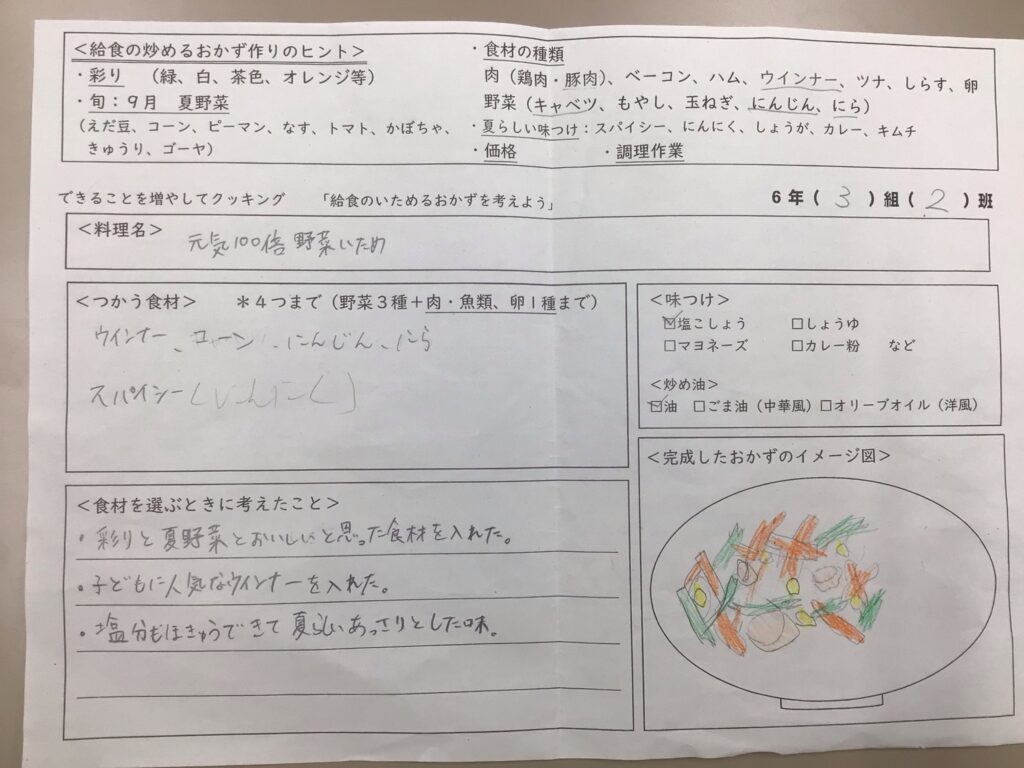 ＜給食の炒めるおかず作りのヒント＞
・彩り　（緑、白、茶色、オレンジ等）
・旬：９月　夏野菜
（えだ豆、コーン、ピーマン、なす、トマト、かぼちゃ、
きゅうり、ゴーヤ）
・食材の種類
肉（鶏肉・豚肉）、ベーコン、ハム、ウインナー、ツナ、しらす、卵
野菜（キャベツ、もやし、玉ねぎ、にんじん、にら）
・夏らしい味つけ：スパイシー、にんにく、しょうが、カレー、キムチ
・価格　　・調理作業
できることを増やしてクッキング　「給食のいためるおかずを考えよう」　６年（３）組（２）班
＜料理名＞
元気100倍野菜いため
＜つかう食材＞　＊４つまで（野菜３種＋肉・魚類、卵１種まで）
ウインナー、コーン、にんじん、にら
スパイシー（にんにく）
＜味つけ＞
☑塩こしょう　□しょうゆ
□マヨネーズ　□カレー粉　など
＜炒め油＞
☑油　□ごま油（中華風）□オリーブオイル（洋風）
＜食材を選ぶときに考えたこと＞
・彩りと夏野菜とおいしいと思った食材を入れた。
・子どもに人気なウインナーを入れた。
・塩分もほきゅうできて夏らしいあっさりとした味。
＜完成したおかずのイメージ図＞